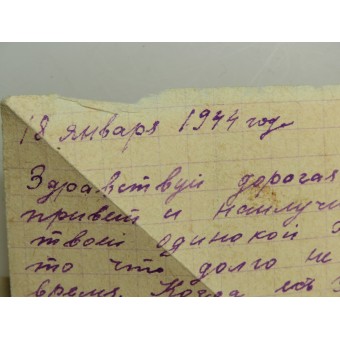 18 января 1944 года
Здравствуй дорогая
привет и наилучш
твоей одинокой
то что долго не
время. Когда